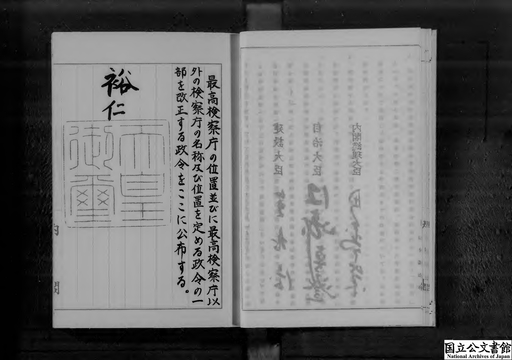 最高検察庁の位置並びに最高検察庁以
外の検察庁の名称及び位置を定める政令の一
部を改正する政令をここに公布する。
裕仁
天皇
御璽
内閣総理大臣
自治大臣
建設大臣
国立公文書館
National Archives of Japan